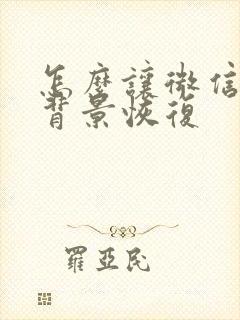 怎麼讓微信
背景恢復
羅亞民